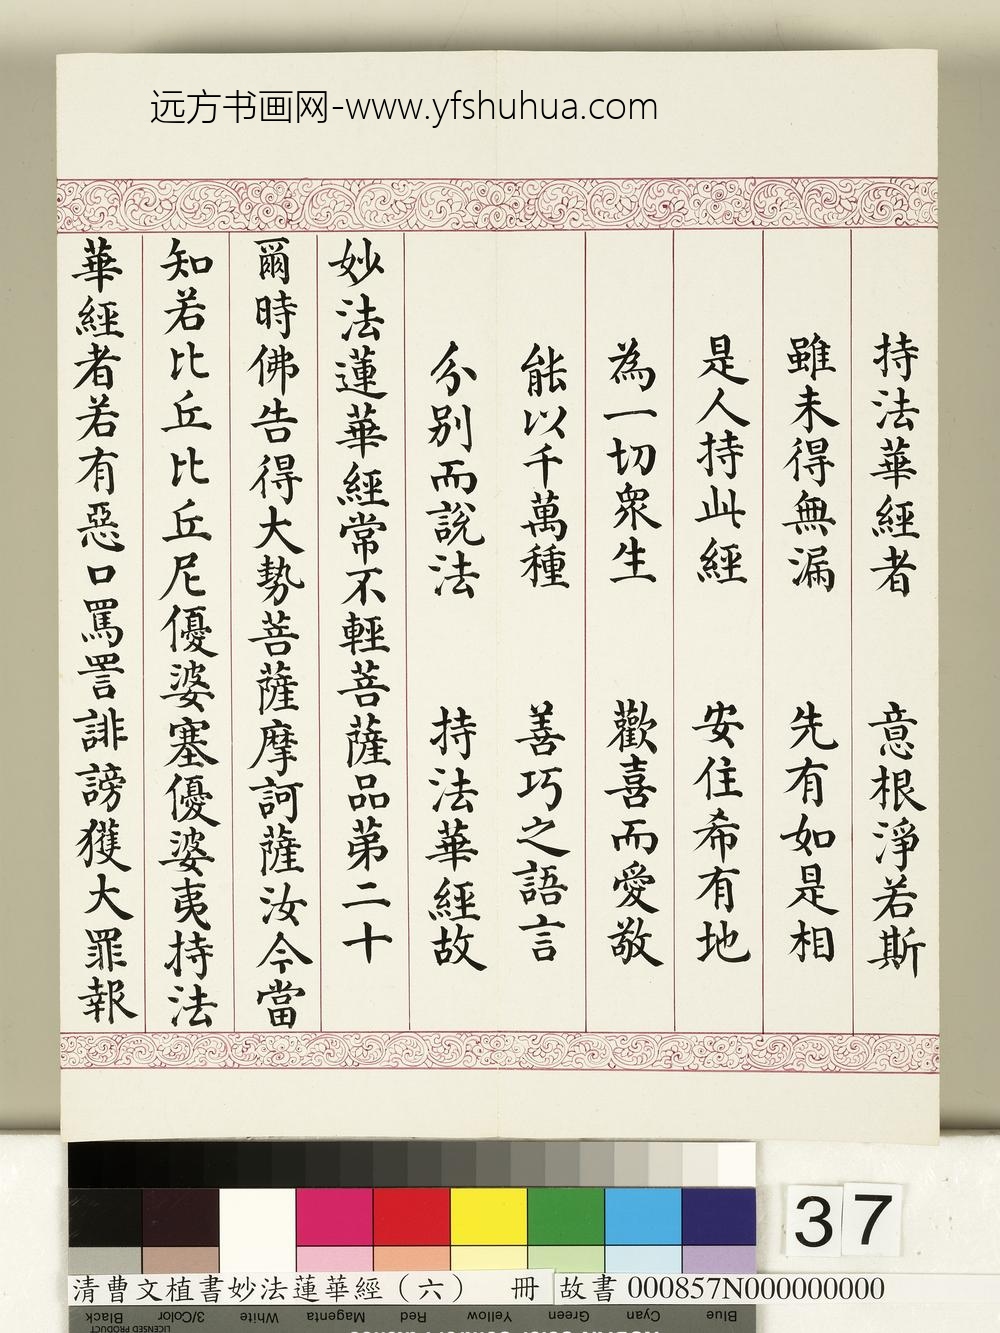 远方书画网-www.yfshuhua.com
持法華經者　意根淨若斯
雖未得無漏　先有如是相
是人持此經　安住希有地
為一切眾生　歡喜而愛敬
能以千萬種　善巧之語言
分別而說法　持法華經故
妙法蓮華經常不輕菩薩品第二十
爾時佛告得大勢菩薩摩訶薩汝今當
知若比丘比丘尼優婆塞優婆夷持法
華經者若有惡口罵詈誹謗獲大罪報
37
清曹文植書妙法蓮華經（六）　冊　故書 000857N000000000
Black 3/Color White Magenta Red Yellow Green Cyan Blue
LICENSED PRODUCT